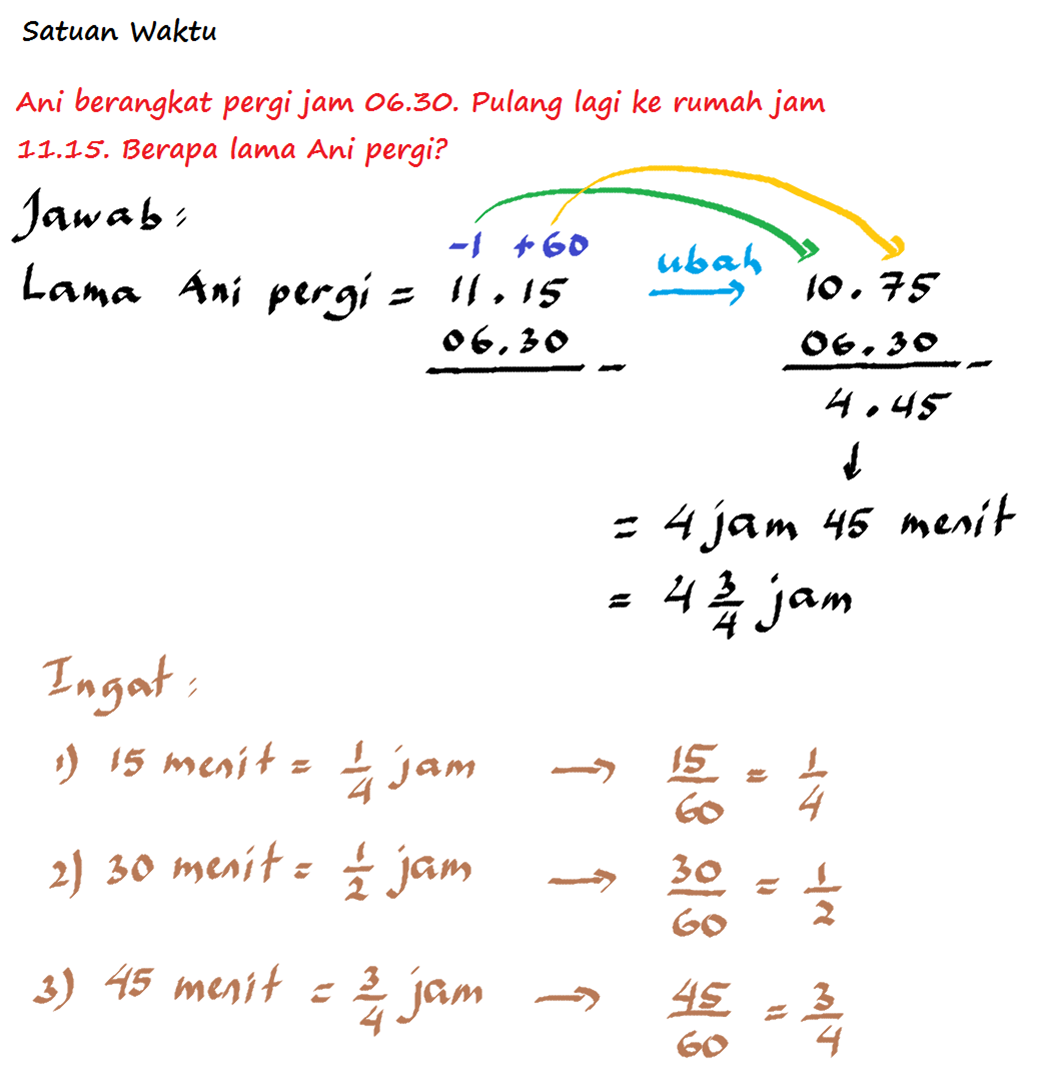 Satuan Waktu
Ani berangkat pergi jam 06.30. Pulang lagi ke rumah jam
11.15. Berapa lama Ani pergi?
Jawab:
-1 +60
Lama Ani pergi = 11.15 ubah 10.75
06.30 - 06.30 -
4.45
↓
= 4 jam 45 menit
= 4 3/4 jam
Ingat:
1) 15 menit = 1/4 jam → 15/60 = 1/4
2) 30 menit = 1/2 jam → 30/60 = 1/2
3) 45 menit = 3/4 jam → 45/60 = 3/4